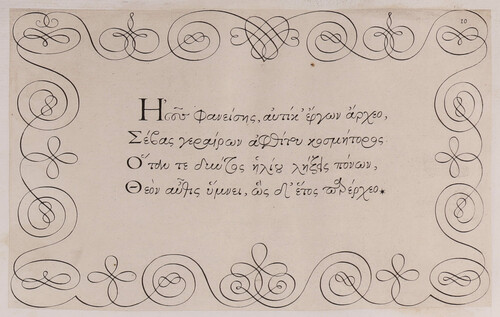 10
Ἠοῦς φανείσης, αὐτίκ' ἔργων ἄρχεο,
Σέβας γεραίρων ἀφθίτου κοσμήτορος
Ὅταν τε δύντος ἡλίου λήξῃς πόνων,
Θεὸν αὖθις ὕμνει, ὣς δι' ἔτος